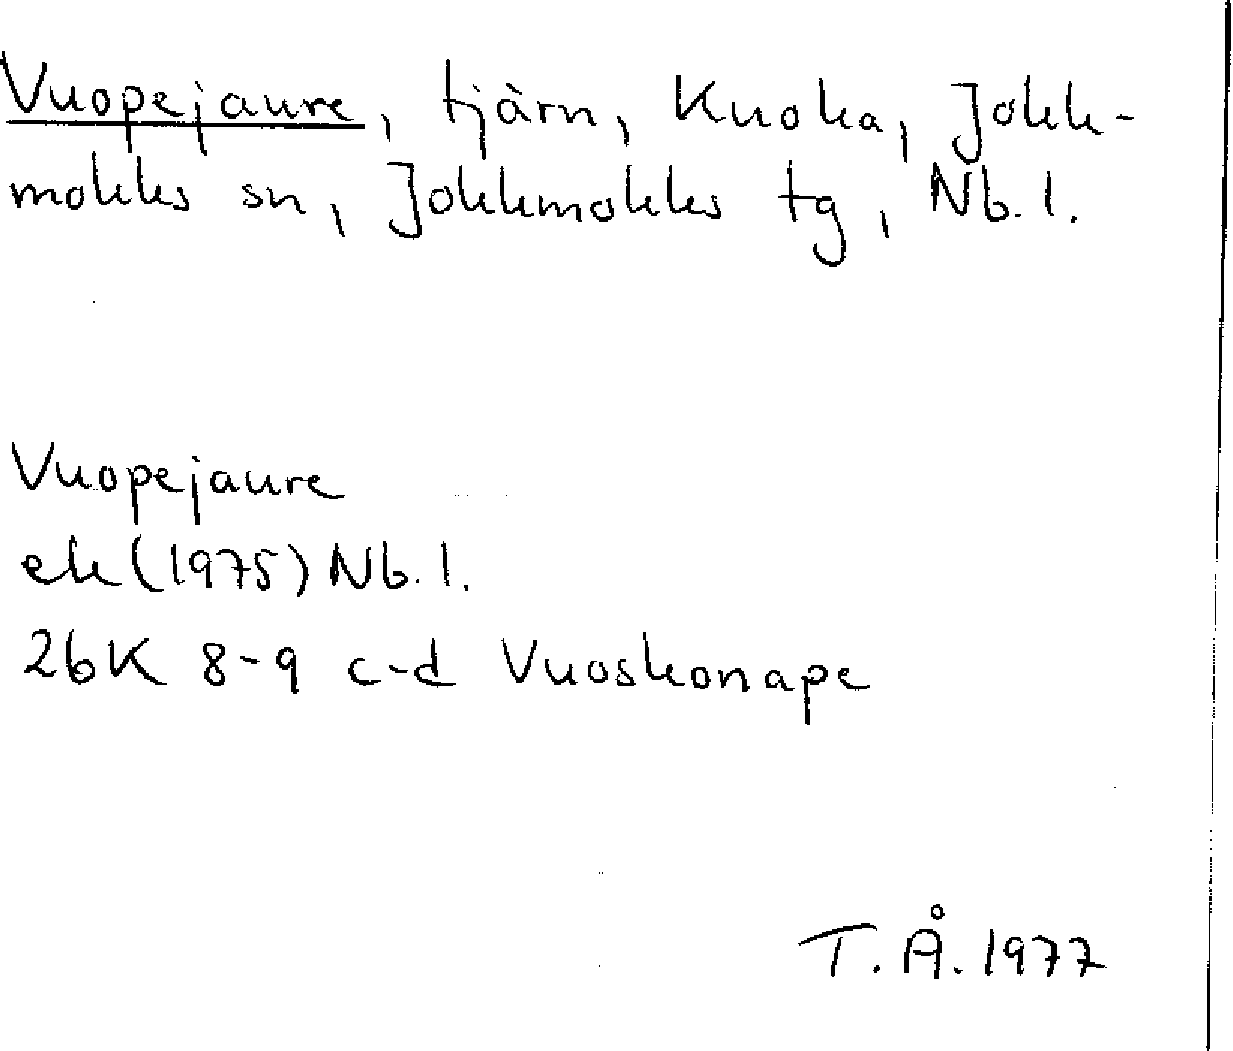 Vuopejaure, tjärn, Kuoka, Jokk-
mokks sn, Jokkmokks tg, Nb. l.
Vuopejaure
ek (1975) Nb. l.
26K 8-9 c-d Vuoskonape
T. Å. 1977